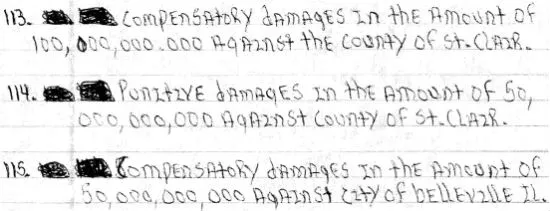 113. COMPENSATORY dAMAGES IN thE AMOUNT OF
100,000,000.000 AGAINSt thE COUNTY OF St.CLAIR.
114. PUNITIVE dAMAGES IN thE AMOUNT OF 50,
000,000,000 AGAINSt COUNTY OF St.CLAIR.
115. COMPENSAtORY dAMAGES IN thE AMOUNT OF
50,000,000,000 AGAINSt CITY OF bELLEVILLE IL.